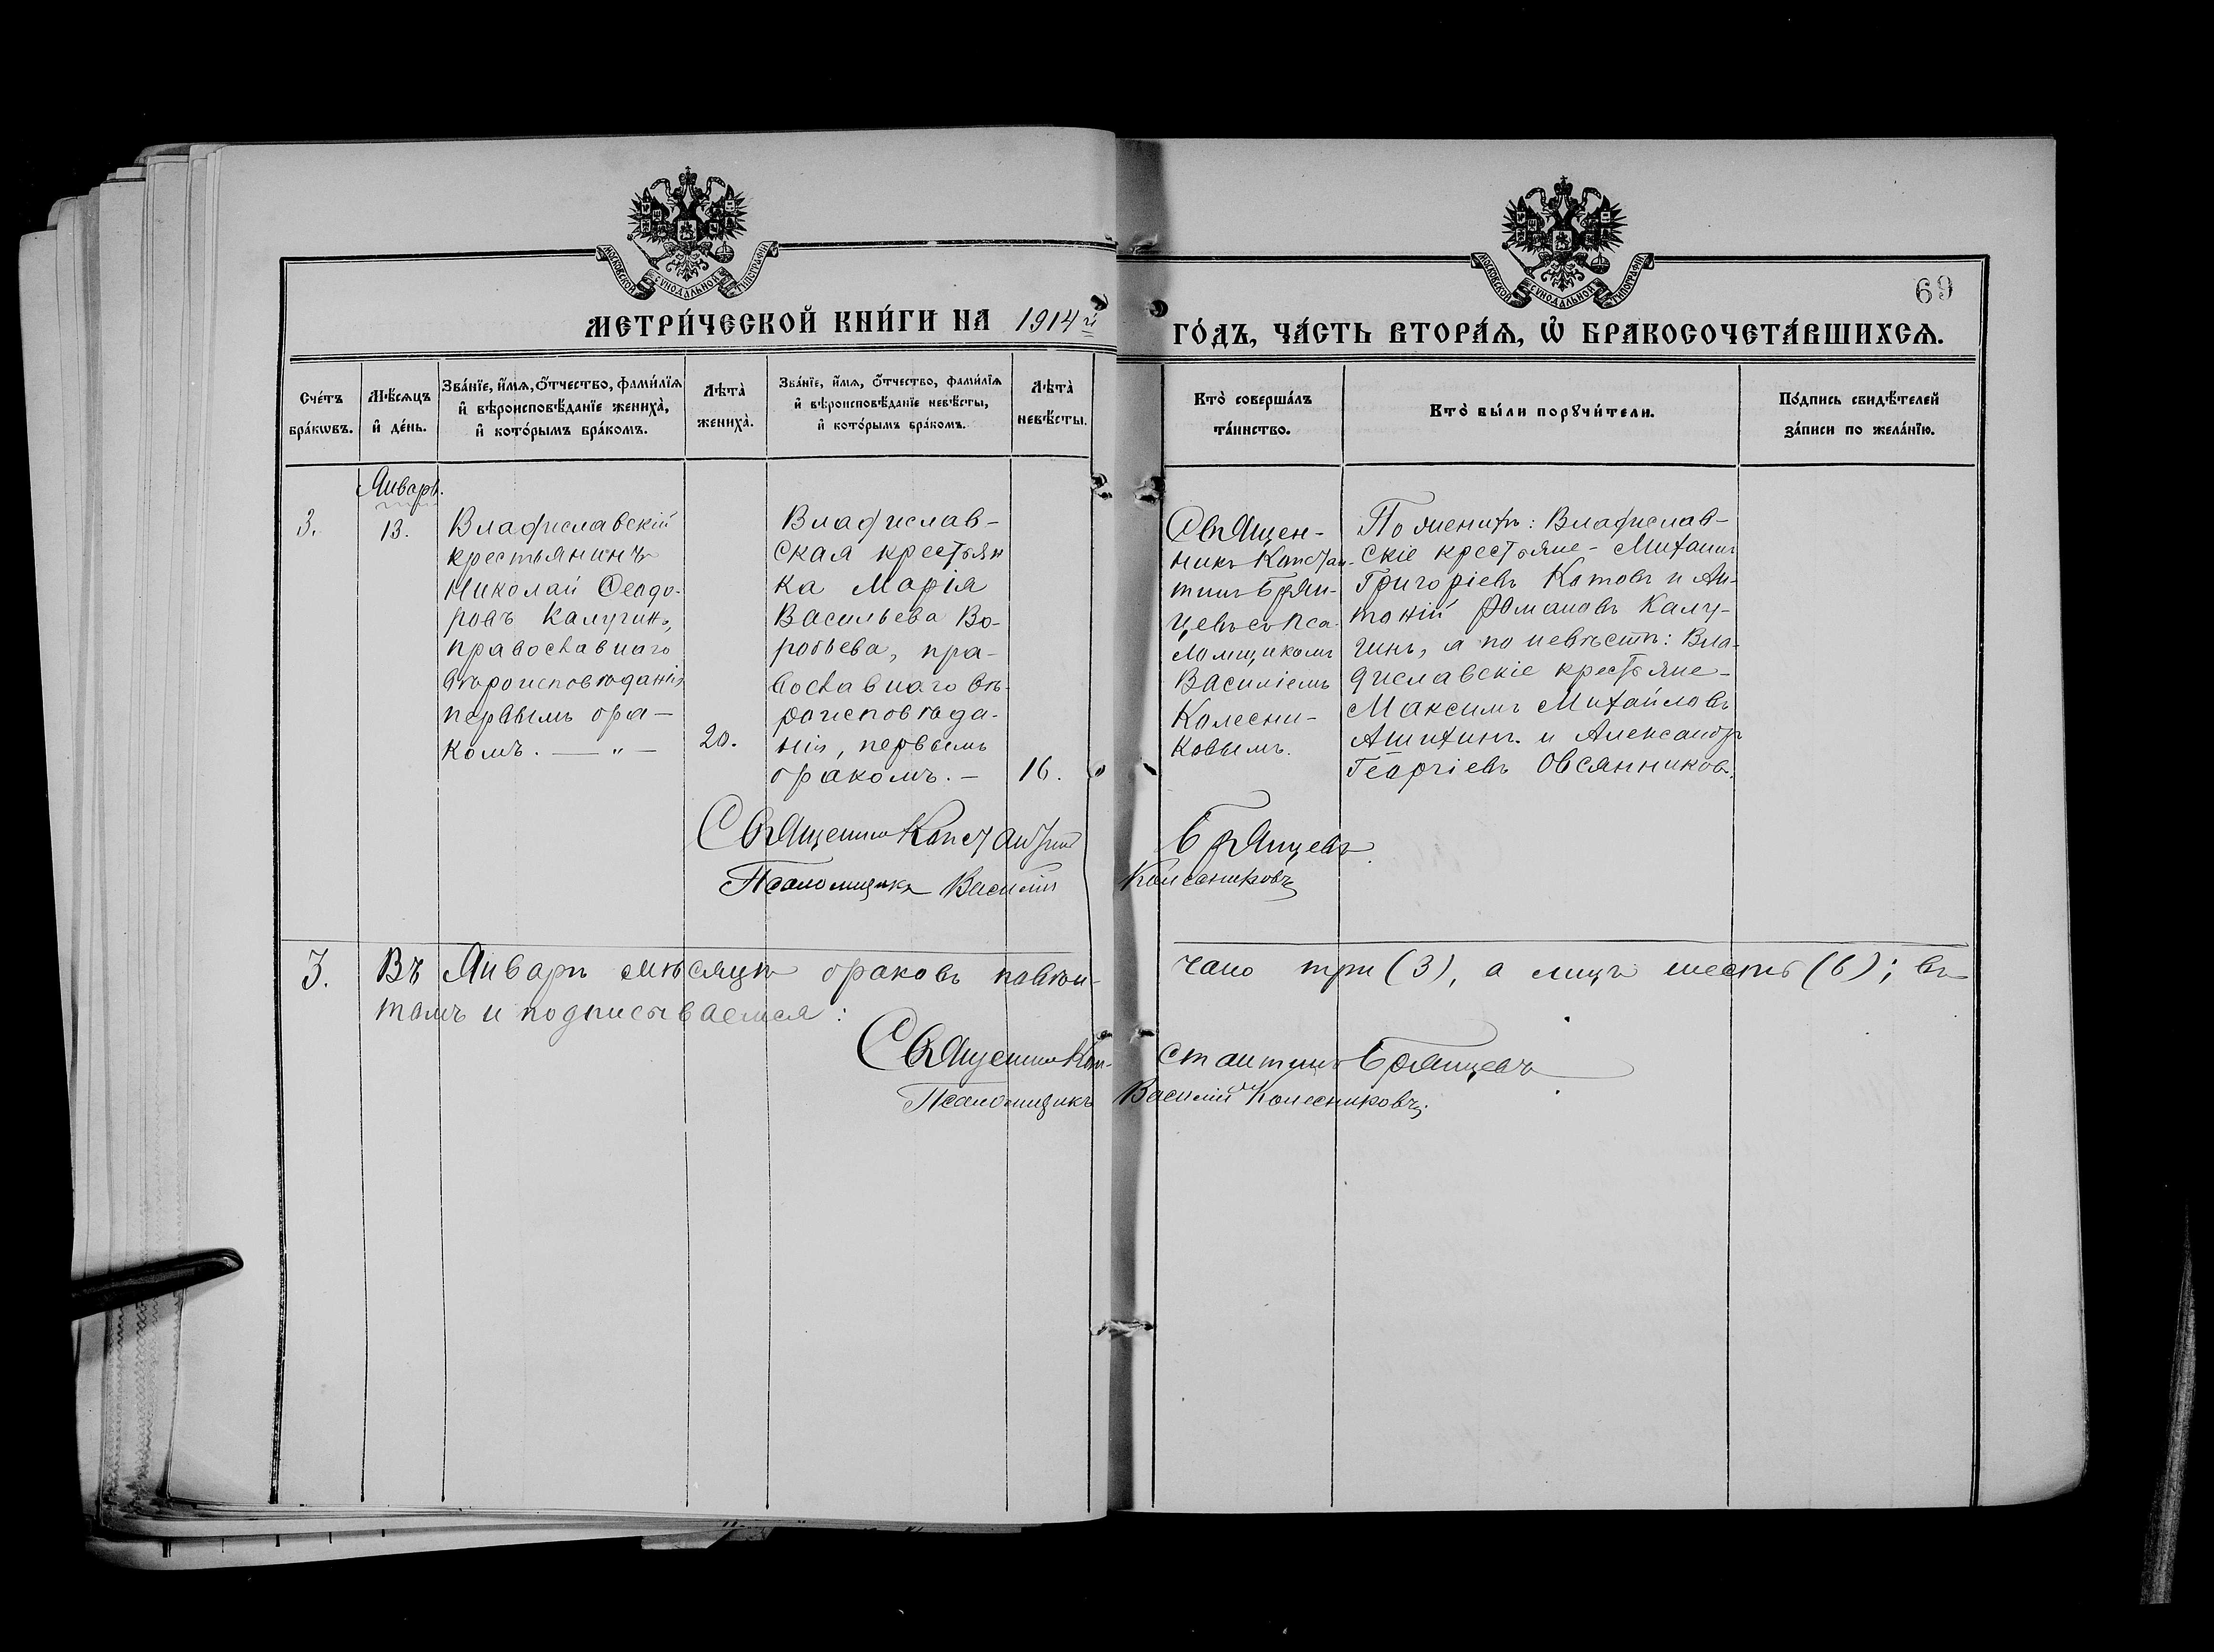 МОСКОВСКОЙ СѴНОДАЛЬНОЙ ТИПОГРАФІИ
МОСКОВСКОЙ СѴНОДАЛЬНОЙ ТИПОГРАФІИ
69
МЕТРИ́ЧЕСКОЙ КНИ́ГИ НА 1914й ГО́ДЪ, ЧА́СТЬ ВТОРА́Ѧ, Ѡ҆ БРАКОСОЧЕТА́ВШИХСѦ.
Сче́тъ
бра́кѡвъ.
Мѣ́сѧцъ
и҆ де́нь.
Зва́нїе, и҆́мѧ, ѻ҆́тчество, фами́лїѧ
и҆ вѣроисповѣ́данїе жениха̀,
и҆ кото́рымъ бра́комъ.
Лѣта̀
жениха̀.
Зва́нїе, и҆́мѧ, ѻ҆́тчество, фами́лїѧ
и҆ вѣроисповѣ́данїе невѣ́сты,
и҆ кото́рымъ бра́комъ.
Лѣта̀
невѣ́сты.
Кто̀ соверша́лъ
та́инство.
Кто̀ бы́ли порꙋчи́тели.
По́дпись свидѣ́телей
за́писи по жела́нїю.
Январь.
3.
13.
Владиславскій
крестьянинъ
Николай Ѳеодо-
ровъ Калугинъ,
православнаго
вѣроисповѣданія
первымъ бра-
комъ. — „ —
20.
Владислав-
ская крестьян
ка Марія
Васильева Во-
робьева, пра-
вославнаго вѣ-
роисповѣда-
нія, первымъ
бракомъ. —
16.
Священ-
никъ Констан-
тинъ Брян-
цевъ съ пса-
ломщикомъ
Василіемъ
Колесни-
ковымъ.
По женихѣ: Владислав-
скіе крестьяне - Михаилъ
Григоріевъ Котовъ и Ан-
тоній Романовъ Калу-
гинъ, а по невѣстѣ: Вла-
диславскіе крестьяне -
Максимъ Михайловъ
и Александръ
Георгіевъ Овсянниковъ.
Священникъ Константинъ Брянцевъ.
Псаломщикъ Василій Колесниковъ
3. Въ Январѣ мѣсяцѣ браковъ повѣн-чано три (3), а лицъ шесть (6); въ
томъ и подписываемся:
Священникъ Кон-стантинъ Брянцевъ
Псаломщикъ Василій Колесниковъ.